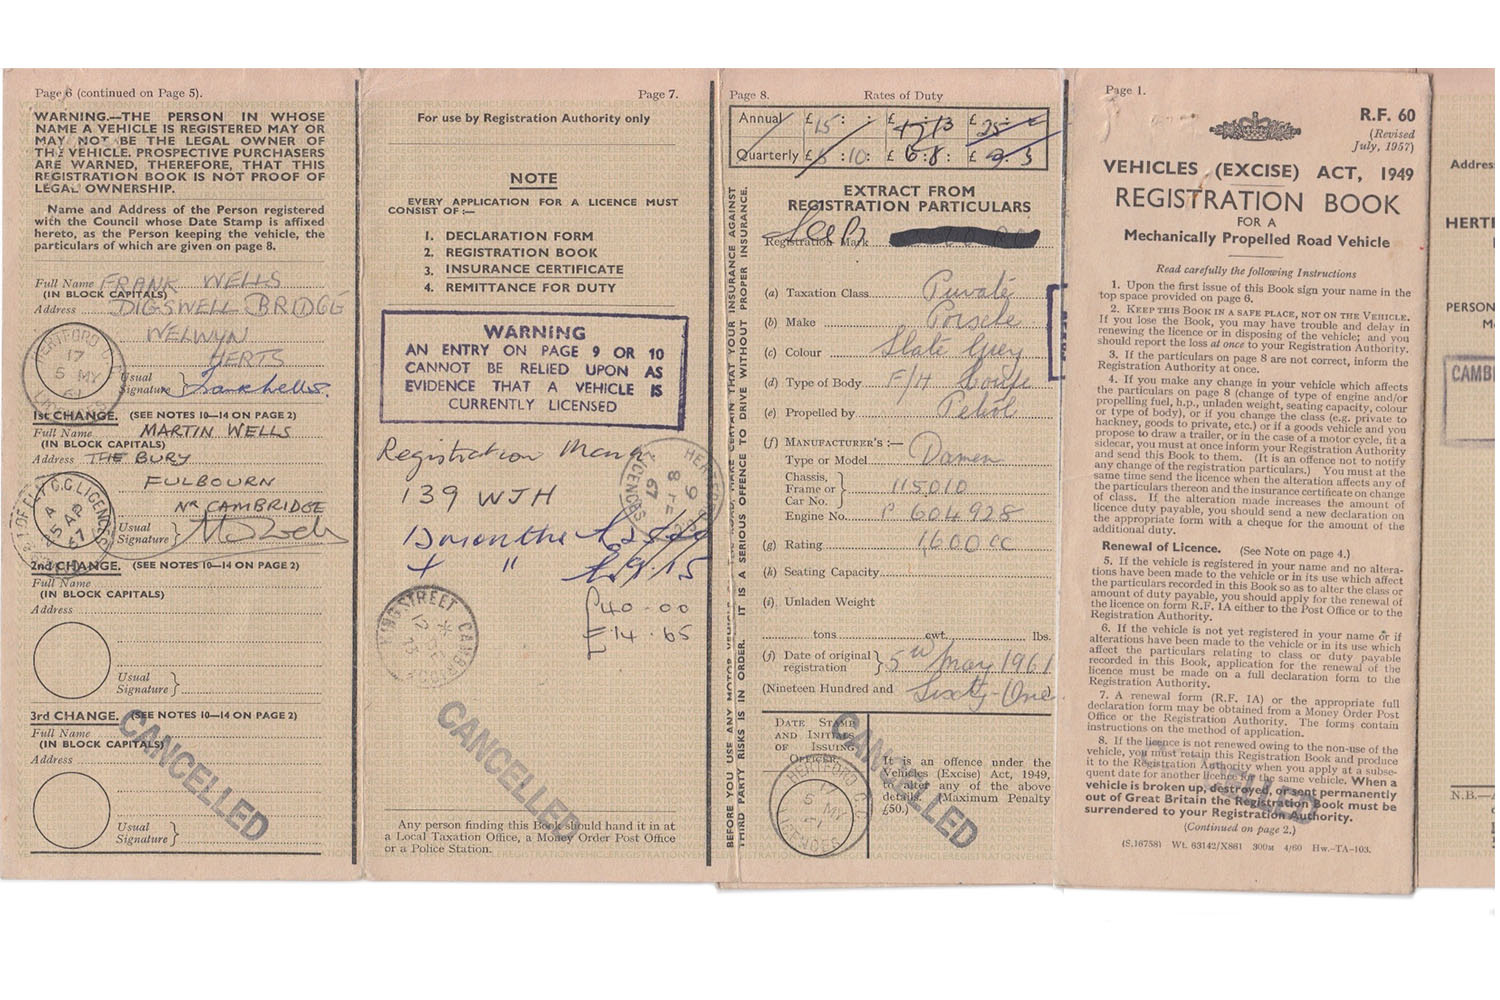 Page 6 (continued on Page 5).
WARNING.—THE PERSON IN WHOSE
NAME A VEHICLE IS REGISTERED MAY OR
MAY NOT BE THE LEGAL OWNER OF
THE VEHICLE. PROSPECTIVE PURCHASERS
ARE WARNED, THEREFORE, THAT THIS
REGISTRATION BOOK IS NOT PROOF OF
LEGAL OWNERSHIP.
Name and Address of the Person registered
with the Council whose Date Stamp is affixed
hereto, as the Person keeping the vehicle, the
particulars of which are given on page 8.
Full Name FRANK WELLS
(IN BLOCK CAPITALS)
Address DIGSWELL BRIDGE
WELWYN
HERTS
HERTFORD C.C.
17
5 MY
61
LICENCES
Usual
Signature } Frank Wells.
1st CHANGE. (SEE NOTES 10—14 ON PAGE 2)
Full Name MARTIN WELLS
(IN BLOCK CAPITALS)
Address THE BURY
FULBOURN
NR CAMBRIDGE
I. OF ELY C.C. LICENCES
4
5 AP
67
Usual
Signature }
2nd CHANGE. (SEE NOTES 10—14 ON PAGE 2)
Full Name
(IN BLOCK CAPITALS)
Address
Usual
Signature }
3rd CHANGE. (SEE NOTES 10—14 ON PAGE 2)
Full Name
(IN BLOCK CAPITALS)
Address
CANCELLED
Usual
Signature }
Page 7.
For use by Registration Authority only
NOTE
EVERY APPLICATION FOR A LICENCE MUST
CONSIST OF :—
1. DECLARATION FORM
2. REGISTRATION BOOK
3. INSURANCE CERTIFICATE
4. REMITTANCE FOR DUTY
WARNING
AN ENTRY ON PAGE 9 OR 10
CANNOT BE RELIED UPON AS
EVIDENCE THAT A VEHICLE IS
CURRENTLY LICENSED
Registration Mark
139 WJH
12 months
4 " £9.15
£40-00
£14.65
KING STREET CAMB
CANCELLED
Any person finding this Book should hand it in at
a Local Taxation Office, a Money Order Post Office
or a Police Station.
Page 8.
Rates of Duty
Annual £15: : £17/13 £25: £
Quarterly £ :10: £ 6:8: £ 9.3
BEFORE YOU USE ANY MOTOR VEHICLE ON THE ROAD, MAKE CERTAIN THAT YOUR INSURANCE AGAINST
THIRD PARTY RISKS IS IN ORDER. IT IS A SERIOUS OFFENCE TO DRIVE WITHOUT PROPER INSURANCE.
EXTRACT FROM
REGISTRATION PARTICULARS
See P7
Registration Mark
(a) Taxation Class Private
(b) Make Porsche
(c) Colour Slate Grey
(d) Type of Body F/H Coupe
(e) Propelled by Petrol
(f) MANUFACTURER'S :—
Type or Model Damen
Chassis,
Frame or
Car No. } 115010
Engine No. P 604928
(g) Rating 1,600 cc
(h) Seating Capacity
(i) Unladen Weight
tons cwt. lbs.
(j) Date of original
registration } 5th May 1961
(Nineteen Hundred and Sixty-One
DATE STAMP
AND INITIALS
OF ISSUING
OFFICER.
It is an offence under the
Vehicles (Excise) Act, 1949,
to alter any of the above
details. (Maximum Penalty
£50.)
HERTFORD C.C.
17
5 MY
61
LICENCES
CANCELLED
Page 1.
R.F. 60
(Revised
July, 1957)
VEHICLES (EXCISE) ACT, 1949
REGISTRATION BOOK
FOR A
Mechanically Propelled Road Vehicle
Read carefully the following Instructions
1. Upon the first issue of this Book sign your name in the
top space provided on page 6.
2. KEEP THIS BOOK IN A SAFE PLACE, NOT ON THE VEHICLE.
If you lose the Book, you may have trouble and delay in
renewing the licence or in disposing of the vehicle; and you
should report the loss at once to your Registration Authority.
3. If the particulars on page 8 are not correct, inform the
Registration Authority at once.
4. If you make any change in your vehicle which affects
the particulars on page 8 (change of type of engine and/or
propelling fuel, h.p., unladen weight, seating capacity, colour
or type of body), or if you change the class (e.g. private to
hackney, goods to private, etc.) or if a goods vehicle and you
propose to draw a trailer, or in the case of a motor cycle, fit a
sidecar, you must at once inform your Registration Authority
and send this Book to them. (It is an offence not to notify
any change of the registration particulars.) You must at the
same time send the licence when the alteration affects any of
the particulars thereon and the insurance certificate on change
of class. If the alteration made increases the amount of
licence duty payable, you should send a new declaration on
the appropriate form with a cheque for the amount of the
additional duty.
Renewal of Licence. (See Note on page 4.)
5. If the vehicle is registered in your name and no altera-
tions have been made to the vehicle or in its use which affect
the particulars recorded in this Book so as to alter the class or
amount of duty payable, you should apply for the renewal of
the licence on form R.F. 1A either to the Post Office or to the
Registration Authority.
6. If the vehicle is not yet registered in your name or if
alterations have been made to the vehicle or in its use which
affect the particulars relating to class or duty payable
recorded in this Book, application for the renewal of the
licence must be made on a full declaration form to the
Registration Authority.
7. A renewal form (R.F. 1A) or the appropriate full
declaration form may be obtained from a Money Order Post
Office or the Registration Authority. The forms contain
instructions on the method of application.
8. If the licence is not renewed owing to the non-use of the
vehicle, you must retain this Registration Book and produce
it to the Registration Authority when you apply at a subse-
quent date for another licence for the same vehicle. When a
vehicle is broken up, destroyed, or sent permanently
out of Great Britain the Registration Book must be
surrendered to your Registration Authority.
(Continued on page 2.)
(S.16758) Wt. 63142/X861 300M 4/60 Hw.-TA-103.
Address
HERTF
PERSON
CAMB
N.B.—